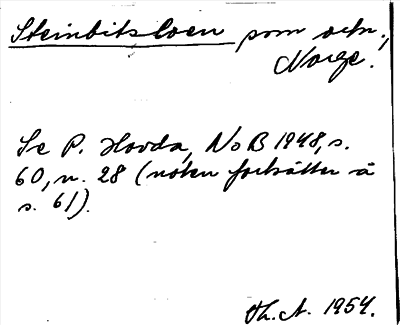 Steinbitsloen som ortn.,
Norge.
Se P. Hovda, NoB 1948, s.
60, n. 28 (noten fortsätter å
s. 61).
Th. A. 1954.